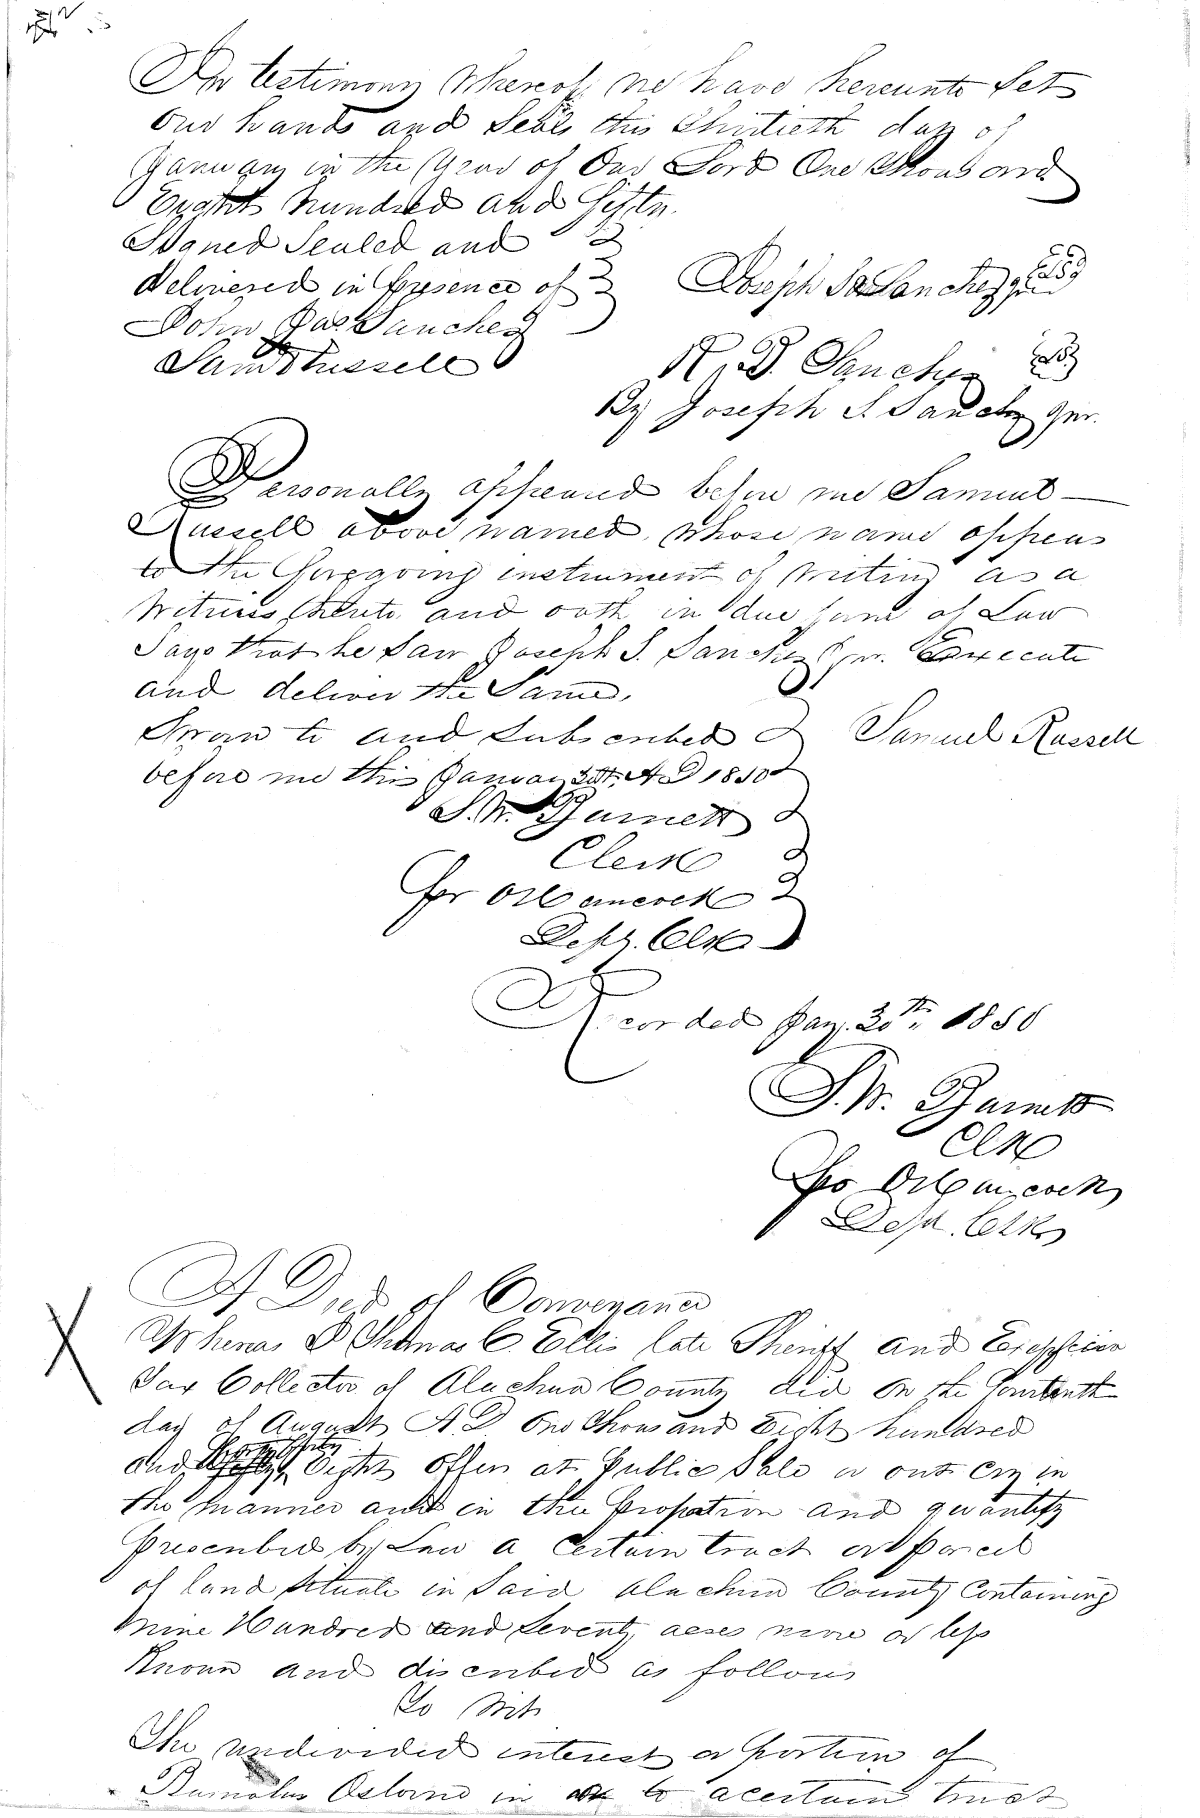 In testimony whereof, we have hereunto Set
our hands and Seals this Thirtieth day of
January in the Year of Our Lord One thousand
Eight hundred and fifty.
Signed Sealed and
delivered in presence of
Joseph S. Sanchez Jun
John Jas. Sanchez
Saml Russell
R. D. Sanchez
By Joseph S. Sanchez Jnr.
Personally appeared before me Samuel
Russell above named, whose name appears
to the foregoing instrument of writing as a
Witness thereto, and oath in due form of Law
Says that he Saw Joseph S. Sanchez Jnr. Execute
and deliver the Same.
Sworn to and Subscribed
Samuel Russell
before me this January 30th A D 1850
S. W. Burnett
Clerk
for Hancock
Depy. Clk
Recorded Jany. 30th, 1850
S. W. Burnett
Clk
Per Hancock
Dept. Clk
A Deed of Conveyance
Whereas I Thomas C. Ellis late Sheriff and
Tax Collector of Alachua County did on the fourteenth
day of August A.D. One thousand Eight hundred
and forty Eight offer at Public Sale or out cry in
the manner and in the proportion and quantity
prescribed by Law a certain tract or parcel
of land situate in Said Alachua County Containing
nine Hundred and Seventy acres more or less
Known and discribed as follows
To Wit
The undivided interest or portion of
Osborne in to a certain tract